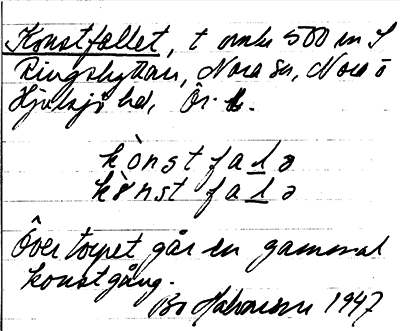 Konstfallet, t omkr 500 m S
Ringshyttan, Nora sn, Nora o
Hjulsjö hd, Ör. l.
kònstfalə
kònstfalə
Över torpet går en gammal
konstgång.
Bo 1947